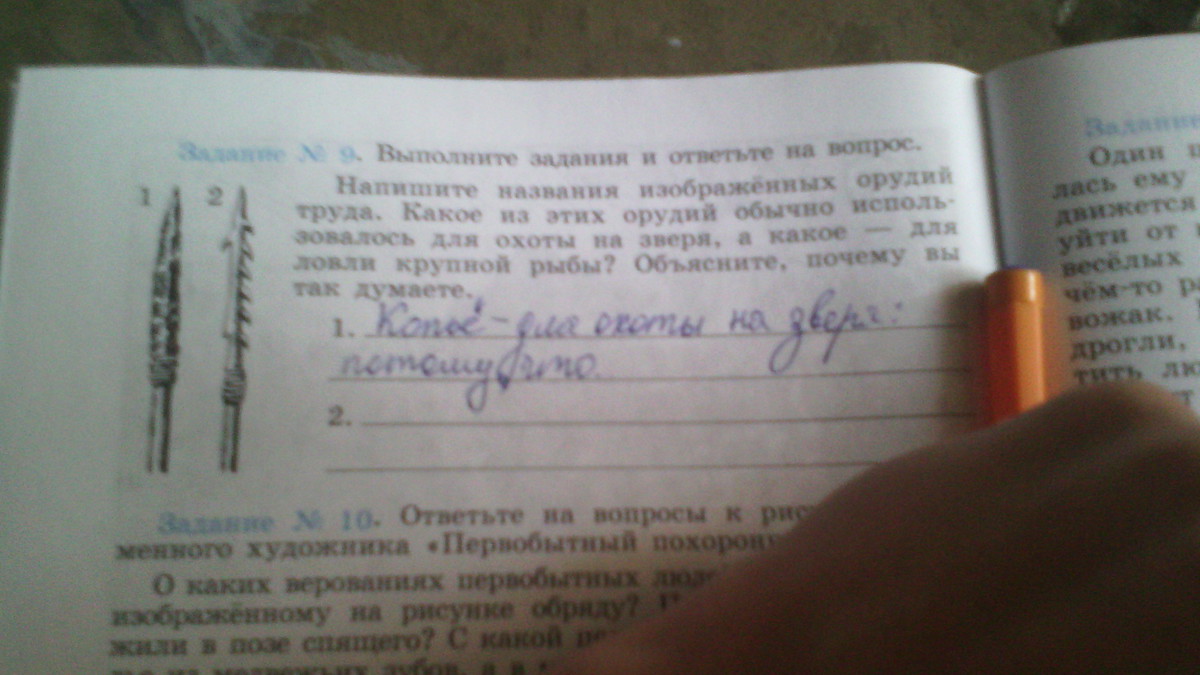 Задание № 9. Выполните задания и ответьте на вопрос.
1 2
Напишите названия изображённых орудий
труда. Какое из этих орудий обычно исполь-
зовалось для охоты на зверя, а какое — для
ловли крупной рыбы? Объясните, почему вы
так думаете.
1. Копьё - для охоты на зверя:
потому, что.
2.
Задание № 10. Ответьте на вопросы к
менного художника «Первобытный
О каких верованиях первобытных
изображённому на рисунке обряду?
жили в позе спящего? С какой
из медвежьих зубов, а в
Задание
Один
лась ему
движется
уйти от
весёлых
чём-то
вожак.
дрогли,
тить